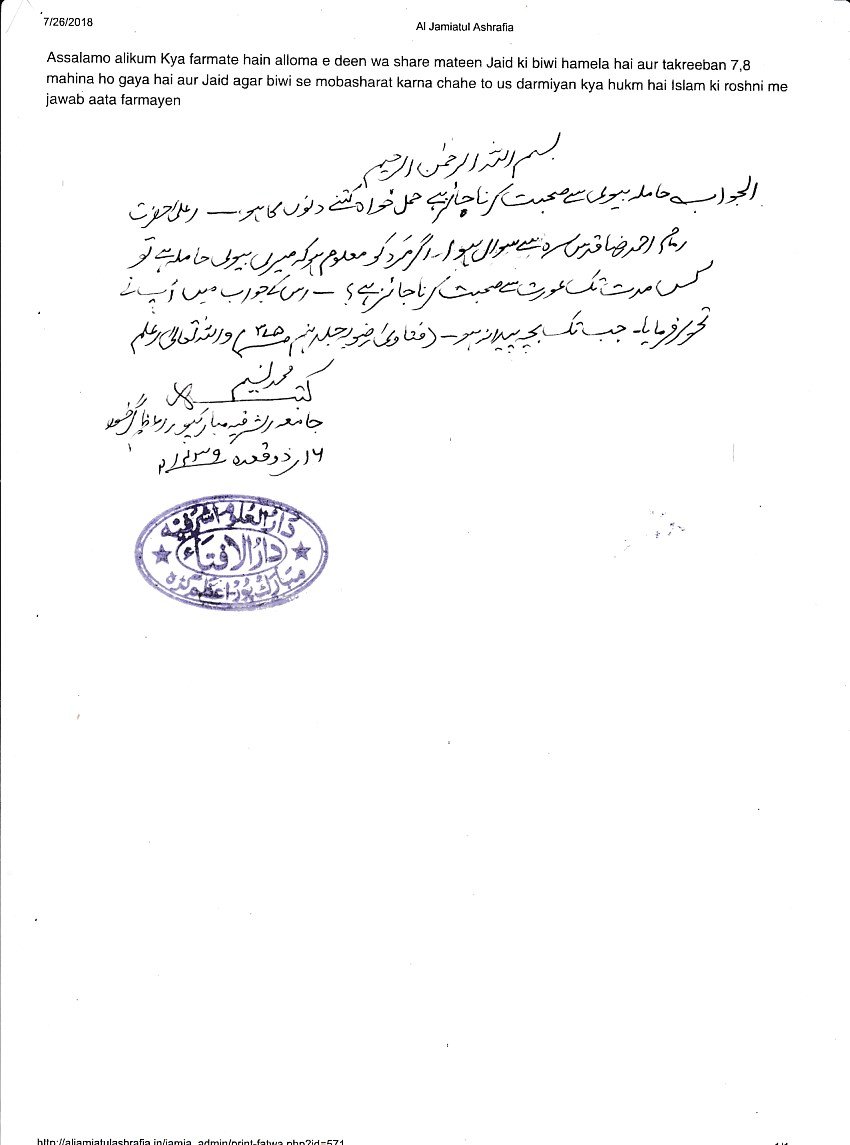 7/26/2018
Al Jamiatul Ashrafia
Assalamo alikum Kya farmate hain alloma e deen wa share mateen Jaid ki biwi hamela hai aur takreeban 7,8
mahina ho gaya hai aur Jaid agar biwi se mobasharat karna chahe to us darmiyan kya hukm hai Islam ki roshni me
jawab aata farmayen
بسم اللہ الرحمٰن الرحیم
الجواب حاملہ بیوی سے صحبت کرنا جائز ہے حمل خواہ کتنے دنوں کا ہو۔ اعلیٰ حضرت
امام احمد رضا قدس سرہ سے سوال ہوا۔ اگر مرد کو معلوم ہو کہ میری بیوی حاملہ ہے تو
کس مدت تک عورت سے صحبت کرنا جائز ہے؟ ۔ اس کے جواب میں آپ نے
تحریر فرمایا۔ جب تک بچہ پیدا نہ ہو۔ (فتاویٰ رضویہ جلد نہم) واللہ تعالیٰ اعلم
محمد نسیم
کتبہ
جامعہ اشرفیہ مبارکپور اعظم گڑھ
۱۶/ذو قعدہ ۱۴۳۹ھ
دار العلوم اشرفیہ
دار الافتاء
مبارک پور اعظم گڑھ
http://aljamiatulashrafia.in/jamia_admin/print-fatwa.php?id=571
1/1